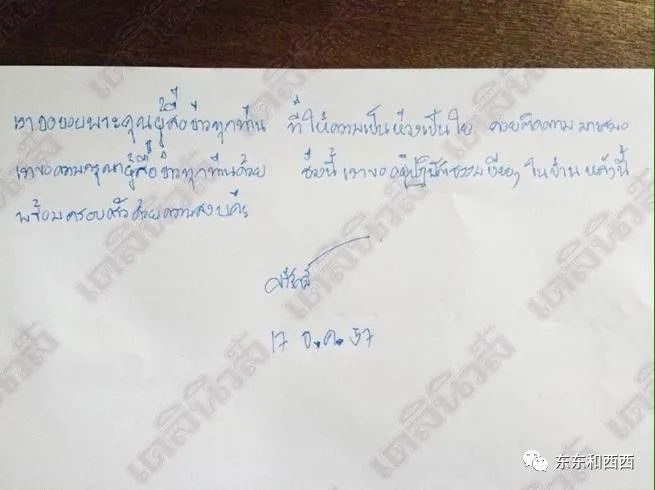 เราขอขอบพระคุณผู้สื่อข่าวทุกท่าน ที่ให้ความเป็นห่วงเป็นใย คอยติดตามมาเสมอ
เราขอความกรุณาผู้สื่อข่าวทุกท่านด้วย ช่วงนี้เราขอปฏิบัติธรรมเงียบๆ ในบ้านหลังนี้
พร้อมครอบครัวด้วยความสงบค่ะ
17 ธ.ค. 57
เดลินิวส์
东东和西西